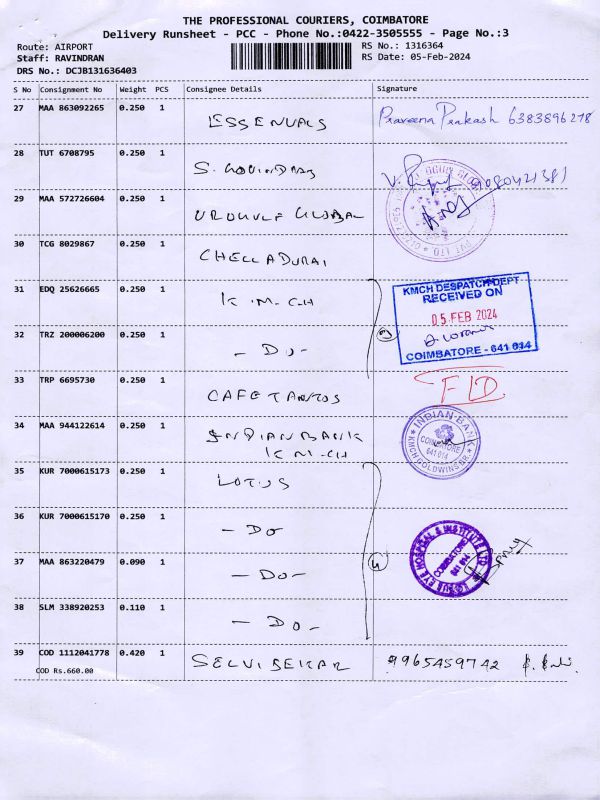 THE PROFESSIONAL COURIERS, COIMBATORE
Delivery Runsheet - PCC - Phone No.:0422-3505555 - Page No.:3
Route: AIRPORT RS No.: 1316364
Staff: RAVINDRAN RS Date: 05-Feb-2024
DRS No.: DCJB131636403
S No Consignment No Weight PCS Consignee Details Signature
27 MAA 863092265 0.250 1 Praveena Prakash 6383896278
28 TUT 6708795 0.250 1 S. GOVINDARAJ
29 MAA 572726604 0.250 1 GLOBAL
PVT LTD
30 TCG 8029867 0.250 1 CHELLADURAI
31 EDQ 25626665 0.250 1 K.M.C.H
KMCH DESPATCH DEPT
RECEIVED ON
05 FEB 2024
COIMBATORE - 641 014
32 TRZ 200006200 0.250 1 - DO -
33 TRP 6695730 0.250 1 CAFE
34 MAA 944122614 0.250 1 INDIAN BANK
K.M.CH
INDIAN BANK
COIMBATORE
641 014
KMCH GOLDWINS BR.
35 KUR 7000615173 0.250 1 LOTUS
36 KUR 7000615170 0.250 1 - DO
LOTUS EYE HOSPITAL & INSTITUTE LTD
COIMBATORE
641 014
37 MAA 863220479 0.090 1 - DO -
38 SLM 338920253 0.110 1 - DO -
39 COD 1112041778 0.420 1 SELVI SEKAR 9965459742
COD Rs.660.00